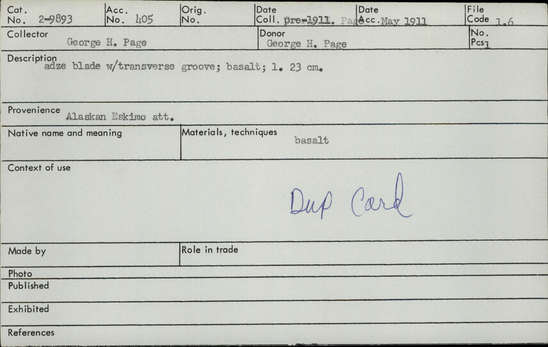 Cat. No. 2-9893 Acc. No. 405 Orig. No. Date Coll. pre-1911. Page Date Acc. May 1911 File Code 1.6
Collector George H. Page Donor George H. Page No. Pcs 1
Description adze blade w/transverse groove; basalt; l. 23 cm.
Provenience Alaskan Eskimo att.
Native name and meaning Materials, techniques basalt
Context of use
Dup Card
Made by Role in trade
Photo
Published
Exhibited
References